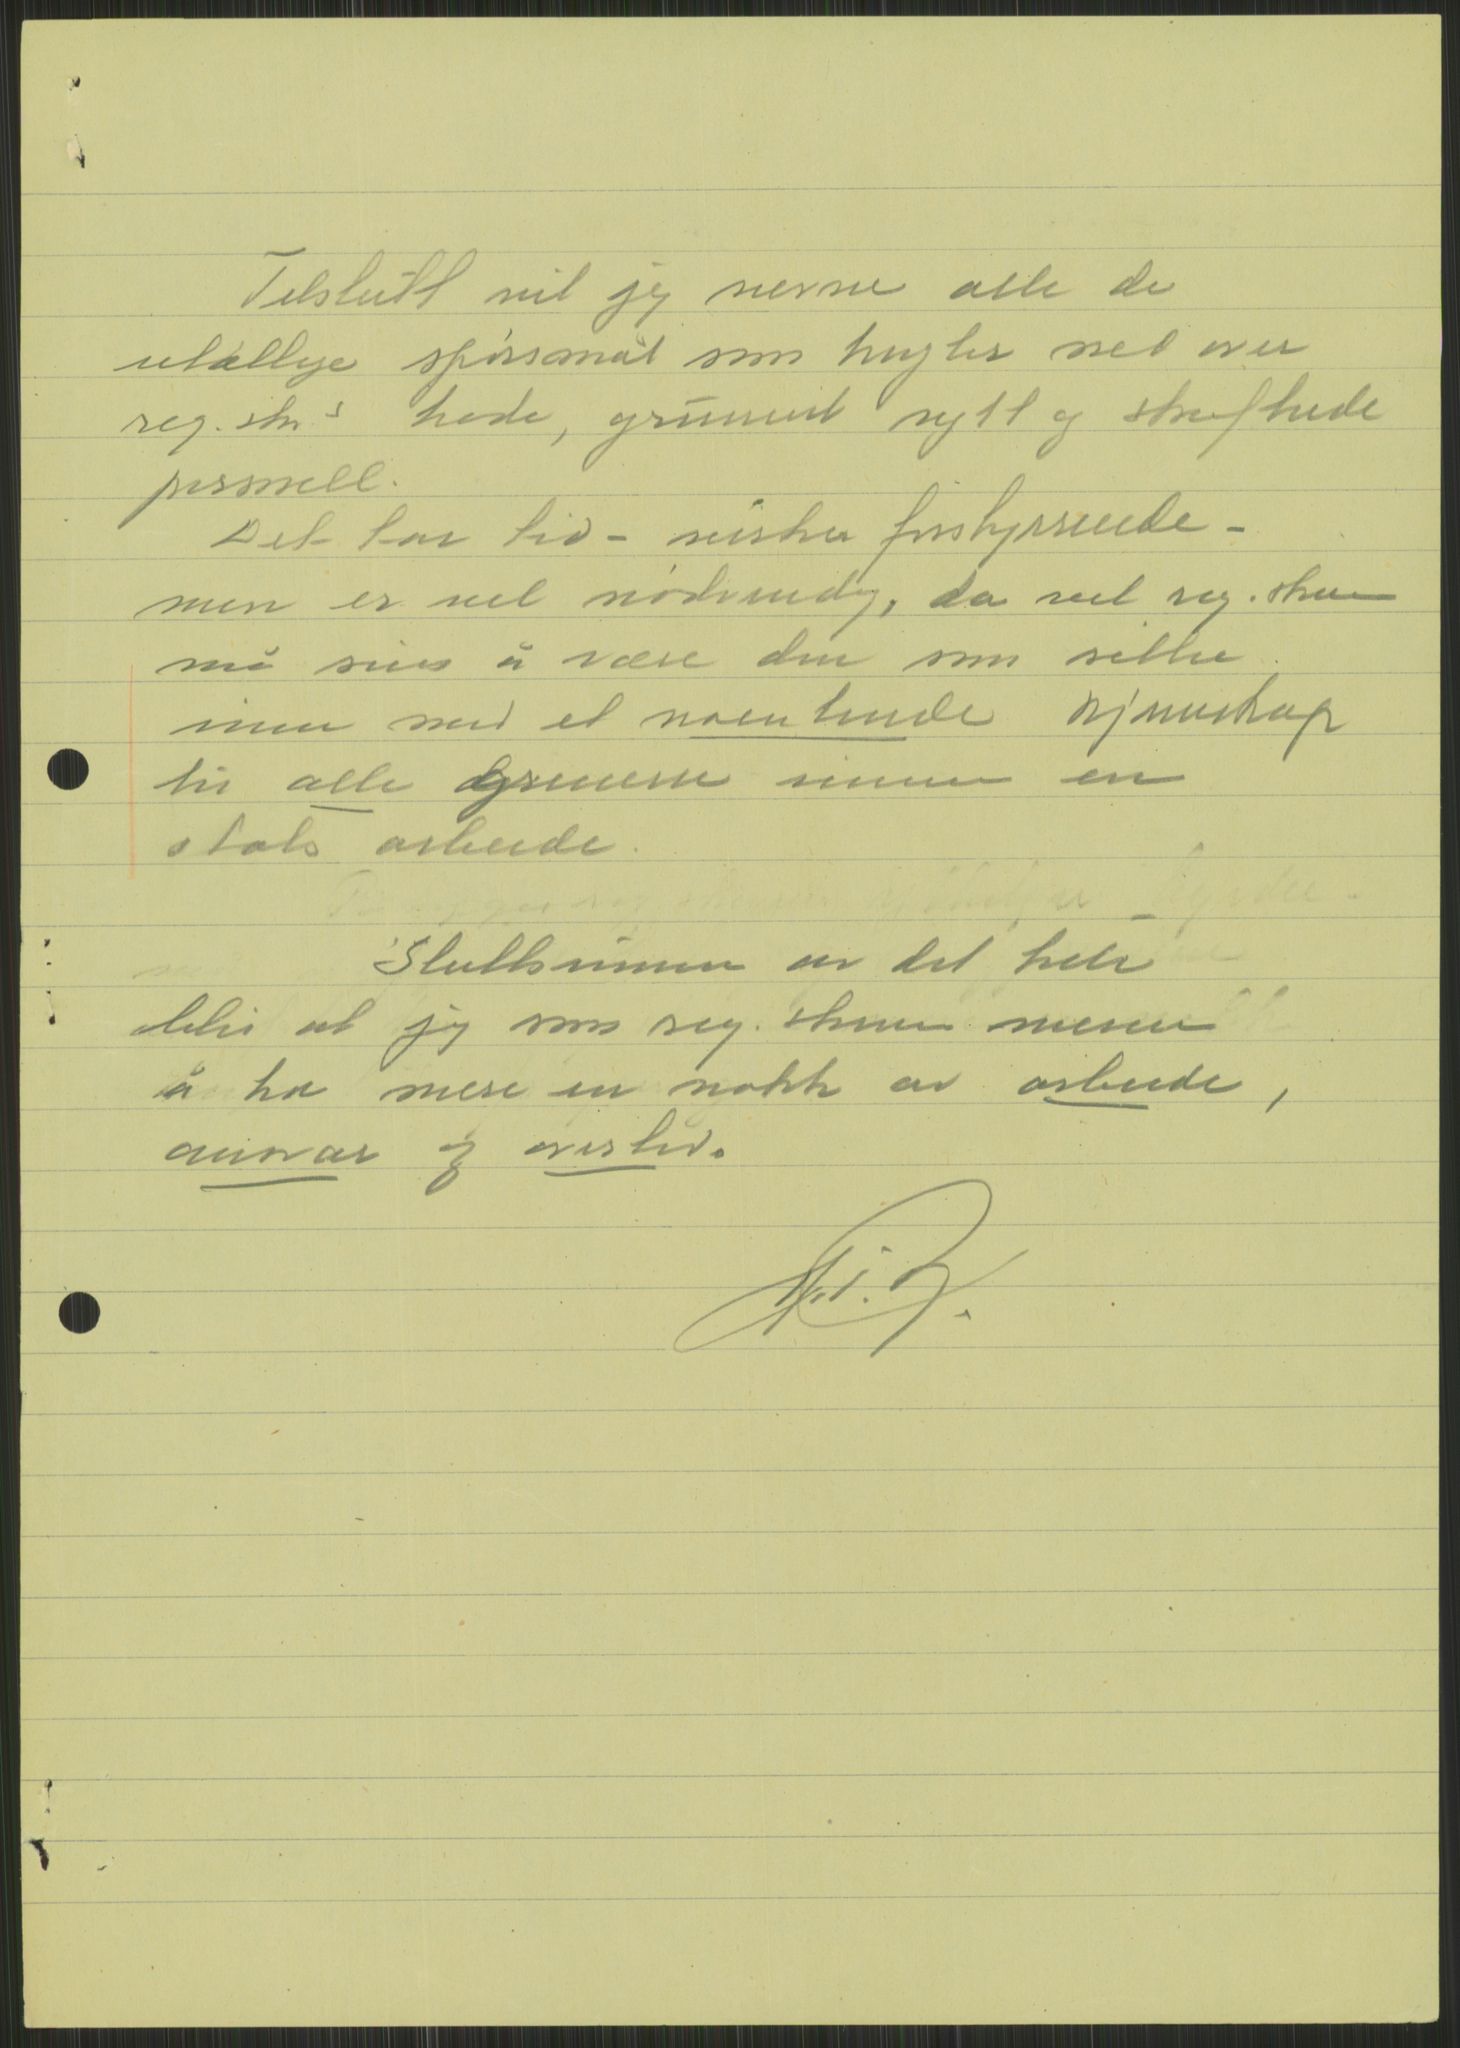 Tilslutt vil jeg nevne alle de
utallige spörsmål som hagler ned over
reg. skr.s hode, grunnet nytt og skiftende
personell.
Det tar tid - virker forstyrrende -
men er vel nødvendig, da vel reg. skr.
må sies å være den som sitter
inne med et noenlunde kjennskap
til alle grenene innen en
stabs arbeide.
Sluttsummen av det hele
blir at jeg som reg. skriver mener
å ha mere en nokk av arbeide,
ansvar og overtid.